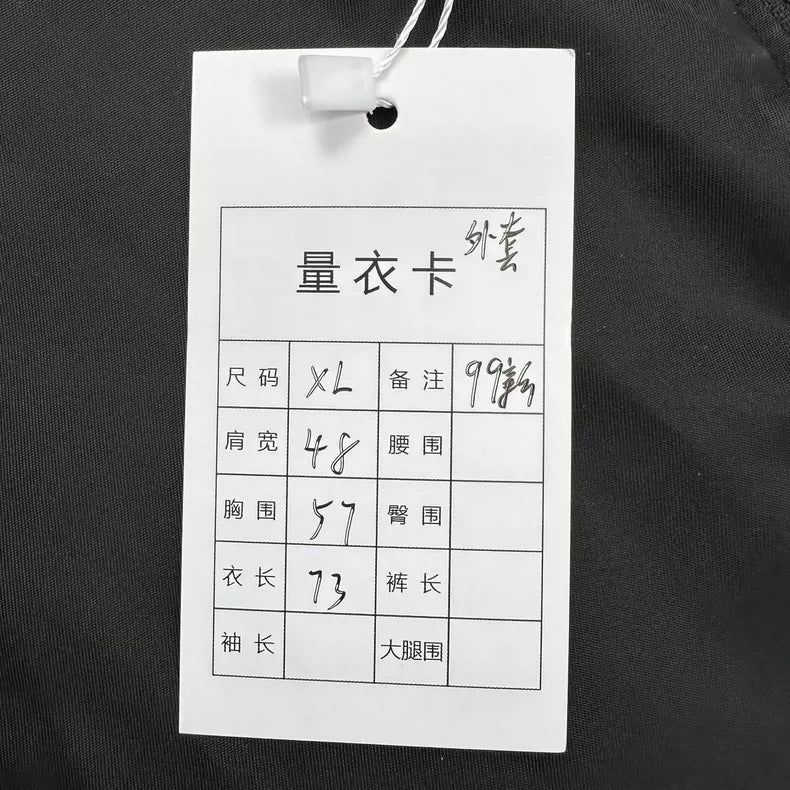 外套
量衣卡
尺码 XL 备注 99新
肩宽 48 腰围
胸围 57 臀围
衣长 73 裤长
袖长 大腿围